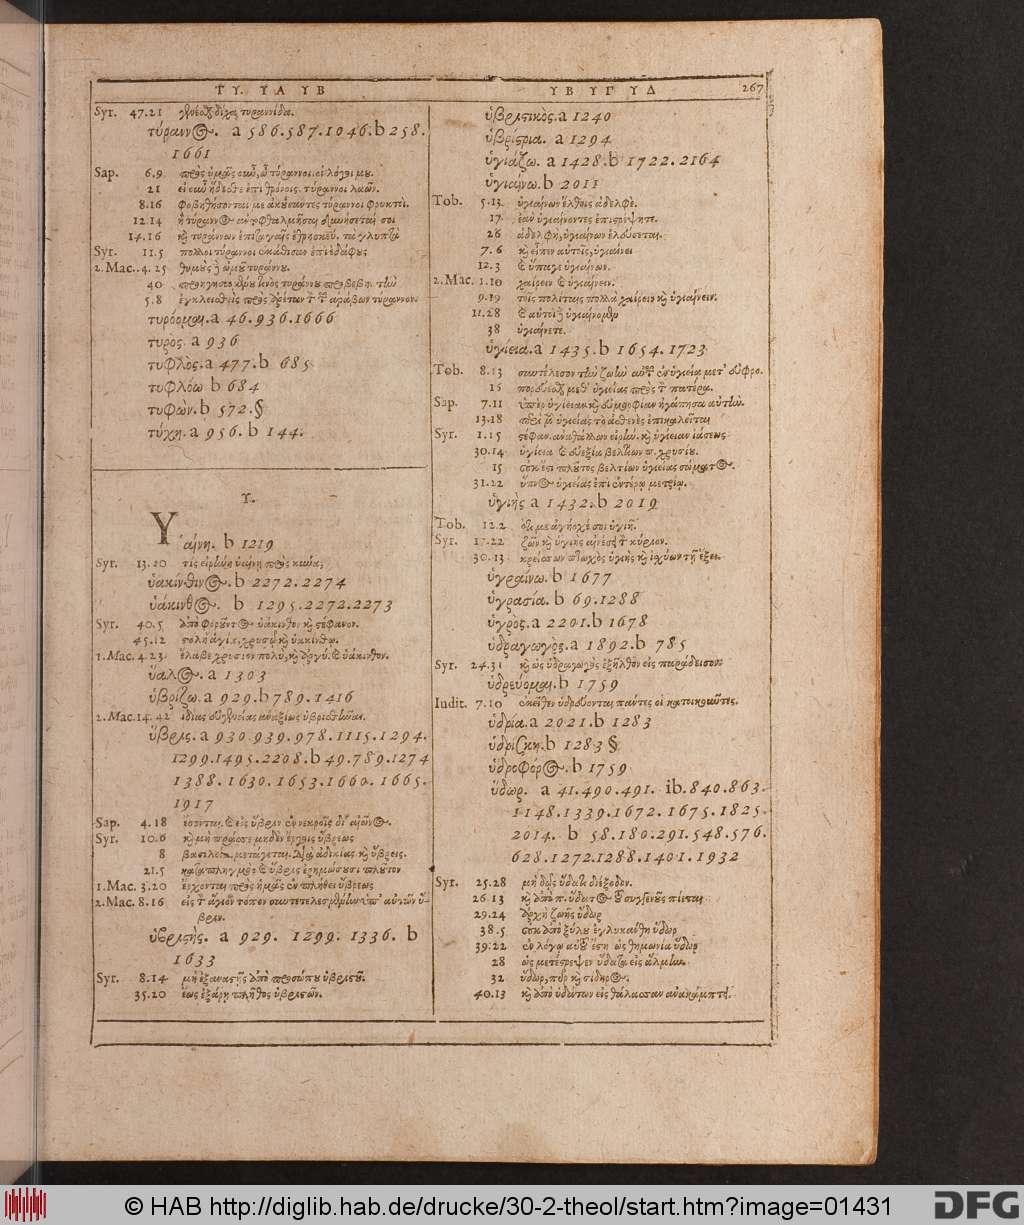 ΤΥ. ΥΑ ΥΒ
ΥΒ ΥΓ ΥΔ 267
Syr. 47.21 τυραννίδα.
τύραννος. a 586.587.1046. b 258.
1661
Sap. 6.9 πρὸς ὑμᾶς οὖν, ὦ τύραννοι οἱ λόγοι μου.
21 εἰ οὖν ἥδεσθε ἐπὶ θρόνοις. τύραννοι λαῶν.
8.16 φοβηθήσονταί με ἀκούσαντες τύραννοι φρικτοί.
12.14 ἢ τύραννος ἀντοφθαλμῆσαι δυνήσεταί σοι
14.16 καὶ τυράννων ἐπιταγαῖς ἐθρησκεύ. τὰ γλυπτὰ
Syr. 11.5 πολλοὶ τύραννοι ἐκάθισαν ἐπὶ ἐδάφους
2. Mac. 4.25 θυμοὺς ὠμοῦ τυράννου.
40
5.8 πρὸς Ἀρέταν τὸν τῶν ἀράβων τύραννον.
τυρόομαι. a 46.936.1666
τυρὸς. a 936
τυφλὸς. a 477. b 685
τυφλόω b 684
τυφὼν. b 572. §
τύχη. a 956. b 144.
Υ.
Ὑαίνη. b 1219
Syr. 13.20 τίς εἰρήνη ὑαίνῃ πρὸς κύνα;
ὑακίνθινος. b 2272.2274
ὑάκινθος. b 1295.2272.2273
Syr. 40.5 ἀπὸ φοροῦντος ὑάκινθον καὶ στέφανον.
45.12 στολῇ ἁγίᾳ, χρυσῷ καὶ ὑακίνθῳ.
1. Mac. 4.23 ἔλαβε χρυσίον πολύ, καὶ ἀργύ. καὶ ὑάκινθον.
ὕαλος. a 1303
ὑβρίζω. a 929. b 789.1416
2. Mac. 14.42 ἰδίας εὐγενείας ἀναξίως ὑβρισθῆναι.
ὕβρις. a 930.939.978.1115.1294.
1299.1495.2208. b 49.789.1274
1388.1630.1653.1660.1665.
1917
Sap. 4.18 ἔσονται καὶ εἰς ὕβριν ἐν νεκροῖς δι’ αἰῶνος.
Syr. 10.6 καὶ μὴ πράσσε μηδὲν ἔργοις ὕβρεως
8 βασιλεία μετάγεται διὰ ἀδικίας καὶ ὕβρεις.
21.5 καταπληγμὸς καὶ ὕβρις ἐρημώσουσι πλοῦτον
1. Mac. 3.20 ἔρχονται πρὸς ἡμᾶς ἐν πλήθει ὕβρεως
2. Mac. 8.16 εἰς τὸν ἅγιον τόπον συντετελεσμένην ὑπ’ αὐτῶν ὕ-
βριν.
ὑβριστὴς. a 929. 1299. 1336. b
1633
Syr. 8.14 μὴ ἐξαναστῇς ἀπὸ προσώπου ὑβριστοῦ.
35.20 ἕως ἐξάρῃ πλῆθος ὑβριστῶν.
ὑβριστικὸς. a 1240
ὑβρίστρια. a 1294
ὑγιάζω. a 1428. b 1722.2164
ὑγιαίνω. b 2011
Tob. 5.13 ὑγιαίνων ἔλθοις ἀδελφέ.
17 ἐὰν ὑγιαίνοντες ἐπιστρέψητε.
26 ἀδελφή, ὑγιαίνων ἐλεύσεται.
7.6 καὶ εἶπεν αὐτοῖς, ὑγιαίνει
12.3 καὶ ὕπαγε ὑγιαίνων.
2. Mac. 1.10 χαίρειν καὶ ὑγιαίνειν.
9.19 τοῖς πολίταις πολλὰ χαίρειν καὶ ὑγιαίνειν.
11.28 καὶ αὐτοὶ ὑγιαίνομεν
38 ὑγιαίνετε.
ὑγίεια. a 1435. b 1654.1723
Tob. 8.13 συντέλεσον τὴν ζωὴν αὐτῶν ἐν ὑγιείᾳ μετ’ εὐφρο.
15 πορεύεσθαι μεθ’ ὑγιείας πρὸς τὸν πατέρα.
Sap. 7.11 ὑπὲρ ὑγίειαν καὶ εὐμορφίαν ἠγάπησα αὐτήν.
13.18 περὶ μὲν ὑγιείας τὸ ἀσθενὲς ἐπικαλεῖται
Syr. 1.15 στέφαν. ἀναθάλλων εἰρήν. καὶ ὑγίειαν ἰάσεως
30.14 ὑγίεια καὶ εὐεξία βελτίων π. χρυσίου.
15 οὐκ ἔστι πλοῦτος βελτίων ὑγιείας σώματος.
31.22 ὕπνος ὑγιείας ἐπὶ ἐντέρῳ μετρίῳ.
ὑγιὴς a 1432. b 2019
Tob. 12.2
Syr. 17.22 ζῶν καὶ ὑγιὴς αἰνέσει τὸν κύριον.
30.13 κρείσσων πτωχὸς ὑγιὴς καὶ ἰσχύων τῇ ἕξει.
ὑγραίνω. b 1677
ὑγρασία. b 69.1288
ὑγρὸς. a 2201. b 1678
ὑδραγωγὸς. a 1892. b 785
Syr. 24.31 καὶ ὡς ὑδραγωγὸς ἐξῆλθον εἰς παράδεισον.
ὑδρεύομαι. b 1759
Iudit. 7.10 ἐκεῖθεν ὑδρεύονται πάντες οἱ κατοικοῦντες.
ὑδρία. a 2021. b 1283
ὑδρίσκη. b 1283 §
ὑδροφόρος. b 1759
ὕδωρ. a 41.490.491. ib. 840.863.
1148.1339.1672.1675.1825.
2014. b 58.180.291.548.576.
628.1272.1288.1401.1932
Syr. 25.28 μὴ δῷς ὕδατι διέξοδον.
26.13 καὶ ἀπὸ π. ὕδατος τοῦ συνεγγυς πίεται
29.24 ἀρχὴ ζωῆς ὕδωρ
38.5 οὐκ ἀπὸ ξύλου ἐγλυκάνθη ὕδωρ
39.22 ἐν λόγῳ αὐτοῦ ἔστη ὡς θημωνία ὕδωρ
28 ὡς μετέστρεψεν ὕδατα εἰς ἅλμην.
32 ὕδωρ, πῦρ καὶ σίδηρος.
40.13 καὶ ἀπὸ ὑδάτων εἰς θάλασσαν ἀνακάμπτει.
© HAB http://diglib.hab.de/drucke/30-2-theol/start.htm?image=01431
DFG